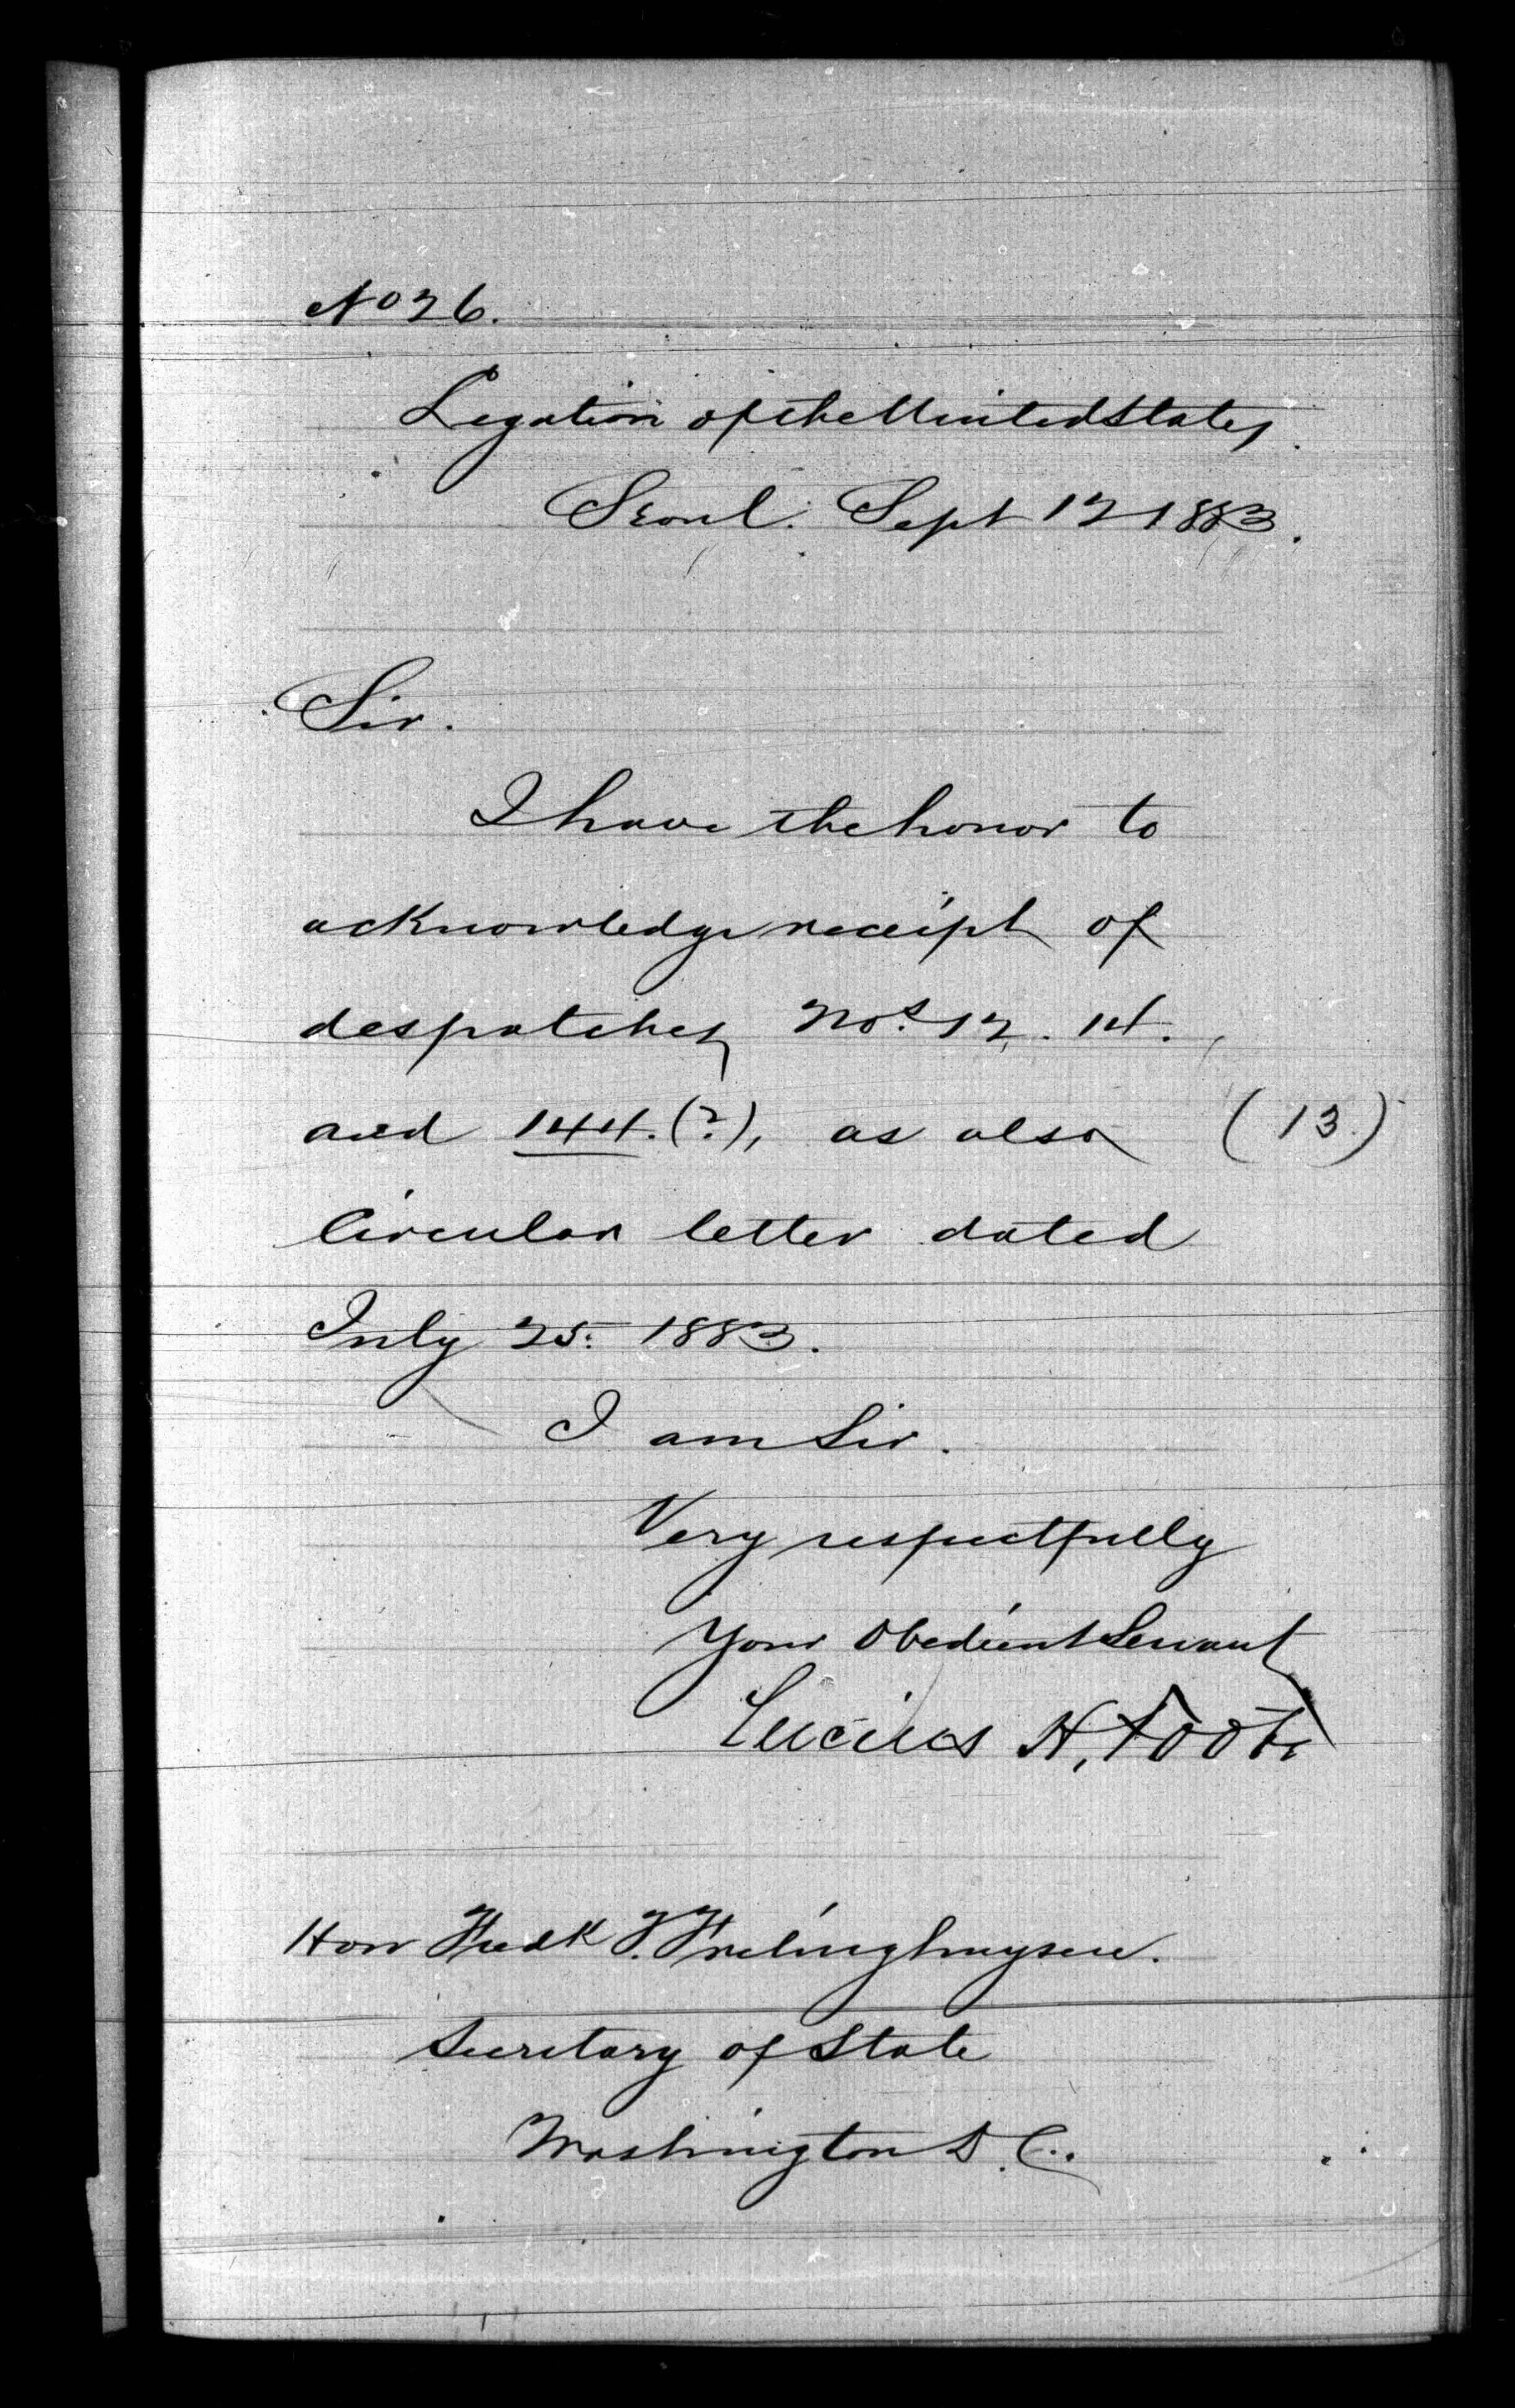 No 26.
Legation of the United States.
Seoul. Sept 12 1883.
Sir.
I have the honor to
acknowledge receipt of
despatches Nos. 12. 14.
and 144. (?), as also (13)
Circular letter dated
July 25. 1883.
I am Sir.
Very respectfully
Your Obedient Servant
Lucius H. Foote
Hon Fredk T. Frelinghuysen.
Secretary of State
Washington D.C.